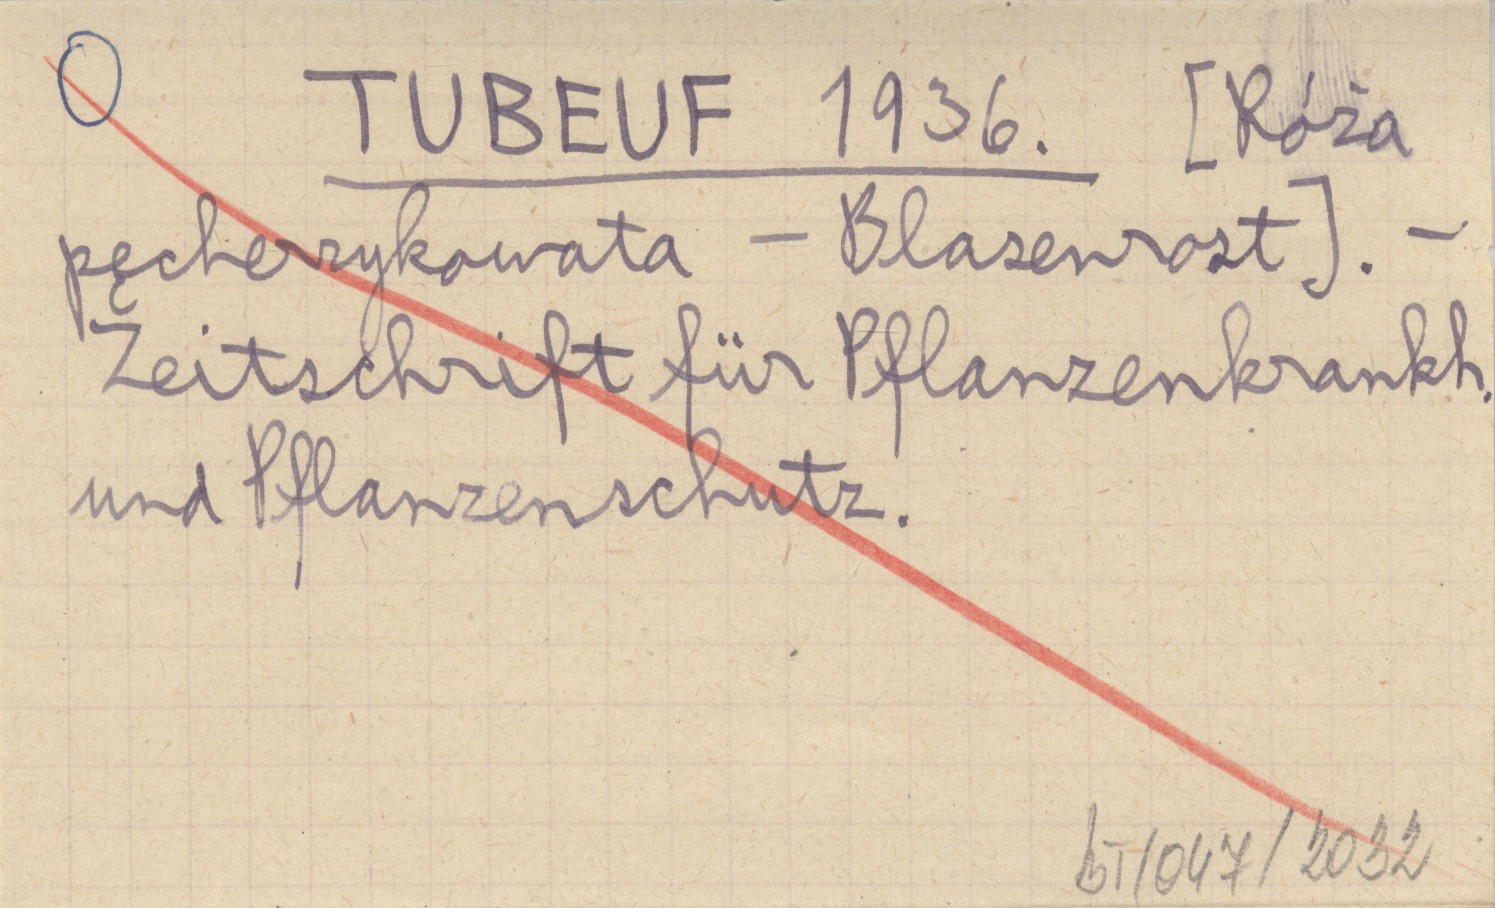 TUBEUF 1936. [Róża
pęcherzykowata – Blasenrost]. –
Zeitschrift für Pflanzenkrankh.
und Pflanzenschutz.
bT/047/2032